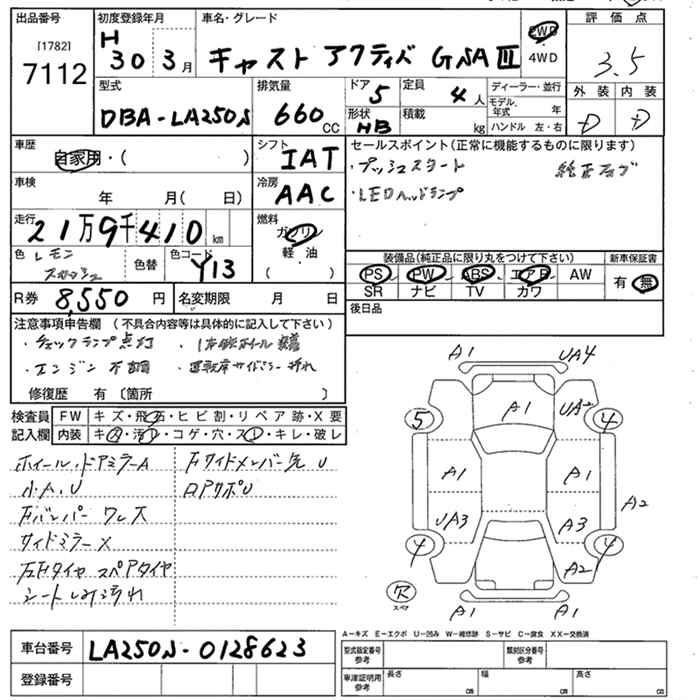 出品番号
[1782]
7112
初度登録年月
H 30年3月
車名・グレード
キャスト アクティバ GSA Ⅲ
2WD
4WD
評価点
3.5
外装 内装
D D
型式
DBA-LA250S
排気量
660 CC
ドア 5
定員 4人
形状 HB
積載 kg
ディーラー・並行
モデル年式 年
ハンドル 左・右
車歴
自家用・( )
シフト
IAT
セールスポイント(正常に機能するものに限ります)
・プッシュスタート
・LEDヘッドランプ
車検
年 月( 日)
冷房
AAC
走行
21万9千410km
燃料
ガソリン
軽・油
( )
色 レモン
色替
色コード
Y13
装備品(純正品に限り丸をつけて下さい)
PS PW ABS エアB AW
SR ナビ TV カワ
新車保証書
有・無
R券 8,550円
名変期限 月 日
後日品
注意事項申告欄 (不具合内容等は具体的に記入して下さい)
・チェックランプ点灯
・エンジン不調
修復歴 有 〔箇所 〕
検査員記入欄
FW キズ・飛石・ヒビ割・リペア跡・X要
内装 キズ・汚レ・コゲ・穴・スレ・キレ・破レ
ホイール・ドアミラーA
小A.U
サイドミラーX
スペアタイヤ
シートしみ汚れ
A1 UA4
A1
5 4
A1 A1
UA3 A3
A2
4 4
A2
欠
スペア
A1 A1
A-キズ E-エクボ U-凹み W-補修跡 S-サビ C-腐食 XX-交換済
車台番号
LA250S-0128623
登録番号
型式指定番号
参考
類別区分番号
参考
車庫証明用
参考
長さ cm
幅 cm
高さ cm